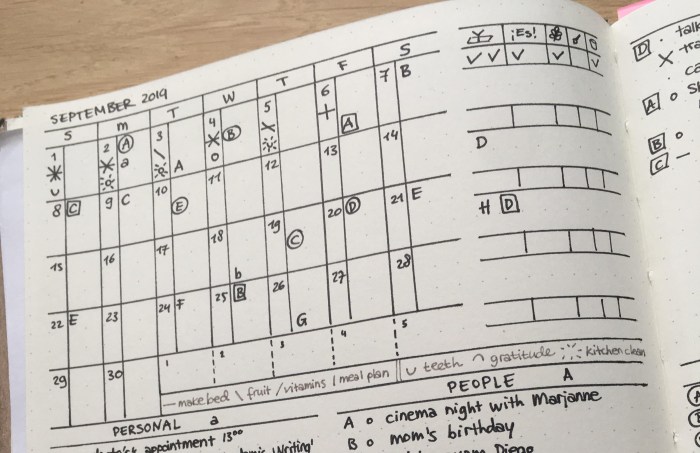 SEPTEMBER 2019
S m T W T F S
1 2 A a 3 A 4 B 5 6 A 7 B
8 C 9 C 10 E 11 12 13 14
15 16 17 18 b 19 C 20 D 21 E
22 E 23 24 F 25 B 26 G 27 28
29 30 1 2 3 4 5
— make bed \ fruit / vitamins | meal plan ∪ teeth ∩ gratitude kitchen clean
¡Es!
D
H D
PERSONAL a
appointment 13⁰⁰
Writing'
PEOPLE A
A o cinema night with Marjanne
B o mom's birthday
Diego
D . talk
A o
B o
C –